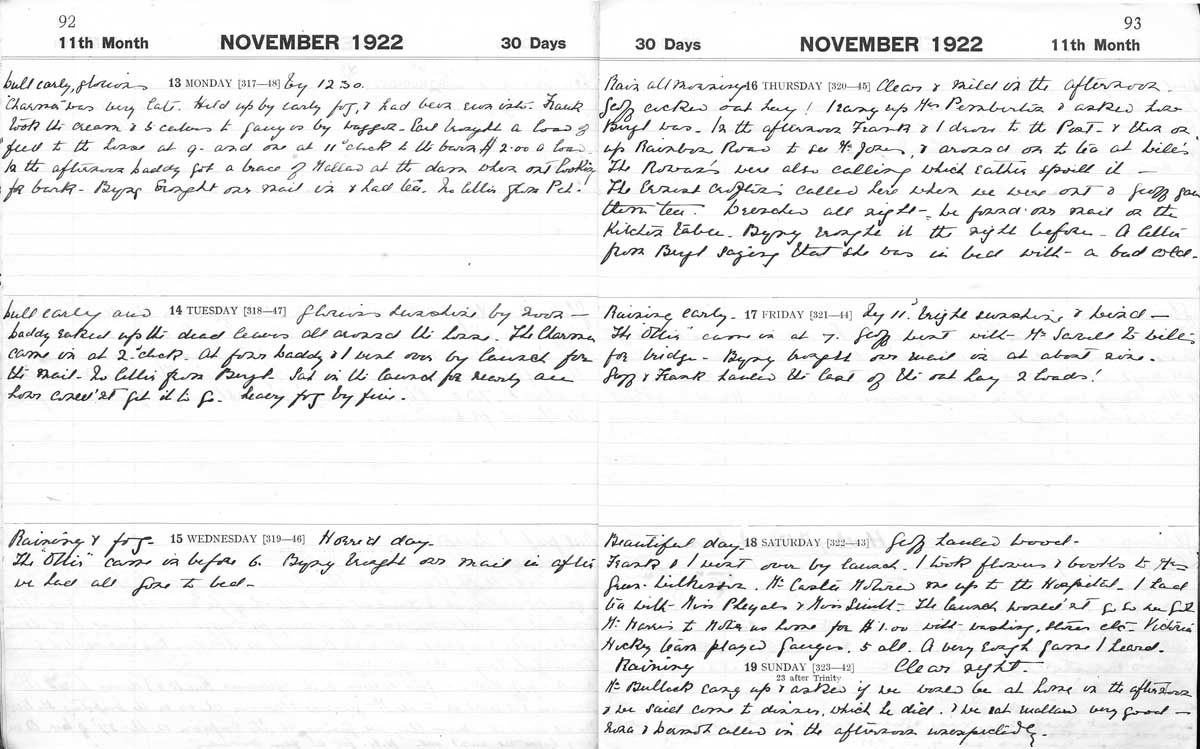 92
11th Month NOVEMBER 1922 30 Days
Dull early, glorious 13 MONDAY [317—48] by 12 30.
"Charmer" was very late. Held up by early fog, & had been run into. Frank
took the cream & 5 to Ganges by waggon. Earl brought a load of
feed to the house at 9. and one at 11 o'clock to the barn $2.00 a load.
In the afternoon Daddy got a brace of Mallard at the dam when out looking
for bark. Byng brought our mail in & had tea. No letter from Pet.
Dull early and 14 TUESDAY [318—47] glorious sunshine by noon —
Daddy raked up the dead leaves all around the house. The Charmer
came in at 2 o'clock. At four Daddy & I went over by launch for
the mail. No letter from Beryl. Sat in the launch for nearly an
hour could'nt get it to go. Heavy fog by five.
Raining & fog. 15 WEDNESDAY [319—46] Horrid day.
The "Otter" came in before 6. Byng brought our mail in after
we had all gone to bed—
93
30 Days NOVEMBER 1922 11th Month
Rain all morning 16 THURSDAY [320—45] Clear & mild in the afternoon.
Geoff out hay! I rang up Mrs Pemberton & asked how
Beryl was. In the afternoon Frank & I drove to the Post & then on
up Rainbow Road to see Mr Jones, & around on to tea at
The Rowan's were also calling which rather spoilt it —
The Ernest Crofton's called here when we were out & Geoff gave
them tea. Drenched all right — he found our mail on the
Kitchen table. Byng brought it the night before — A letter
from Beryl saying that she was in bed with a bad cold.
Raining early. 17 FRIDAY [321—44] By 11. bright sunshine & wind —
The "Otter" came in at 7. Geoff went with Mr to
for bridge. Byng brought our mail in at about nine.
Geoff & Frank hauled the last of the oat hay 2 loads!
Beautiful day 18 SATURDAY [322—43] Geoff hauled wood.
Frank & I went over by launch. I took flowers & books to Mrs
Mr Castle Motored me up to the Hospital. I had
tea with Miss & Miss Smith — The launch would'nt go so we got
Mr Harris to Motor us home for $1.00 with washing, stores etc — Victoria
Hockey team played Ganges. 5 all. A very rough game I heard.
Raining 19 SUNDAY [323—42] Clear night.
23 after Trinity
Mr Bullock rang up & asked if we would be at home in the afternoon
& we said come to dinner, which he did. & we eat mallard very good —
Nora & called in the afternoon unexpectedly.